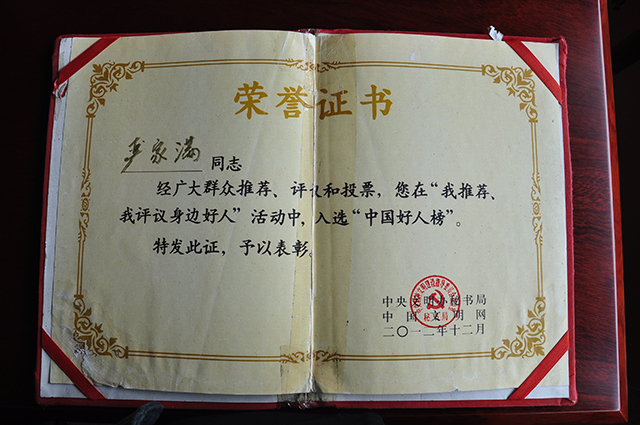 荣誉证书
家满 同志
经广大群众推荐、评议和投票，您在“我推荐、
我评议身边好人”活动中，入选“中国好人榜”。
特发此证，予以表彰。
中央文明办秘书局
中国文明网
二〇一二年十二月